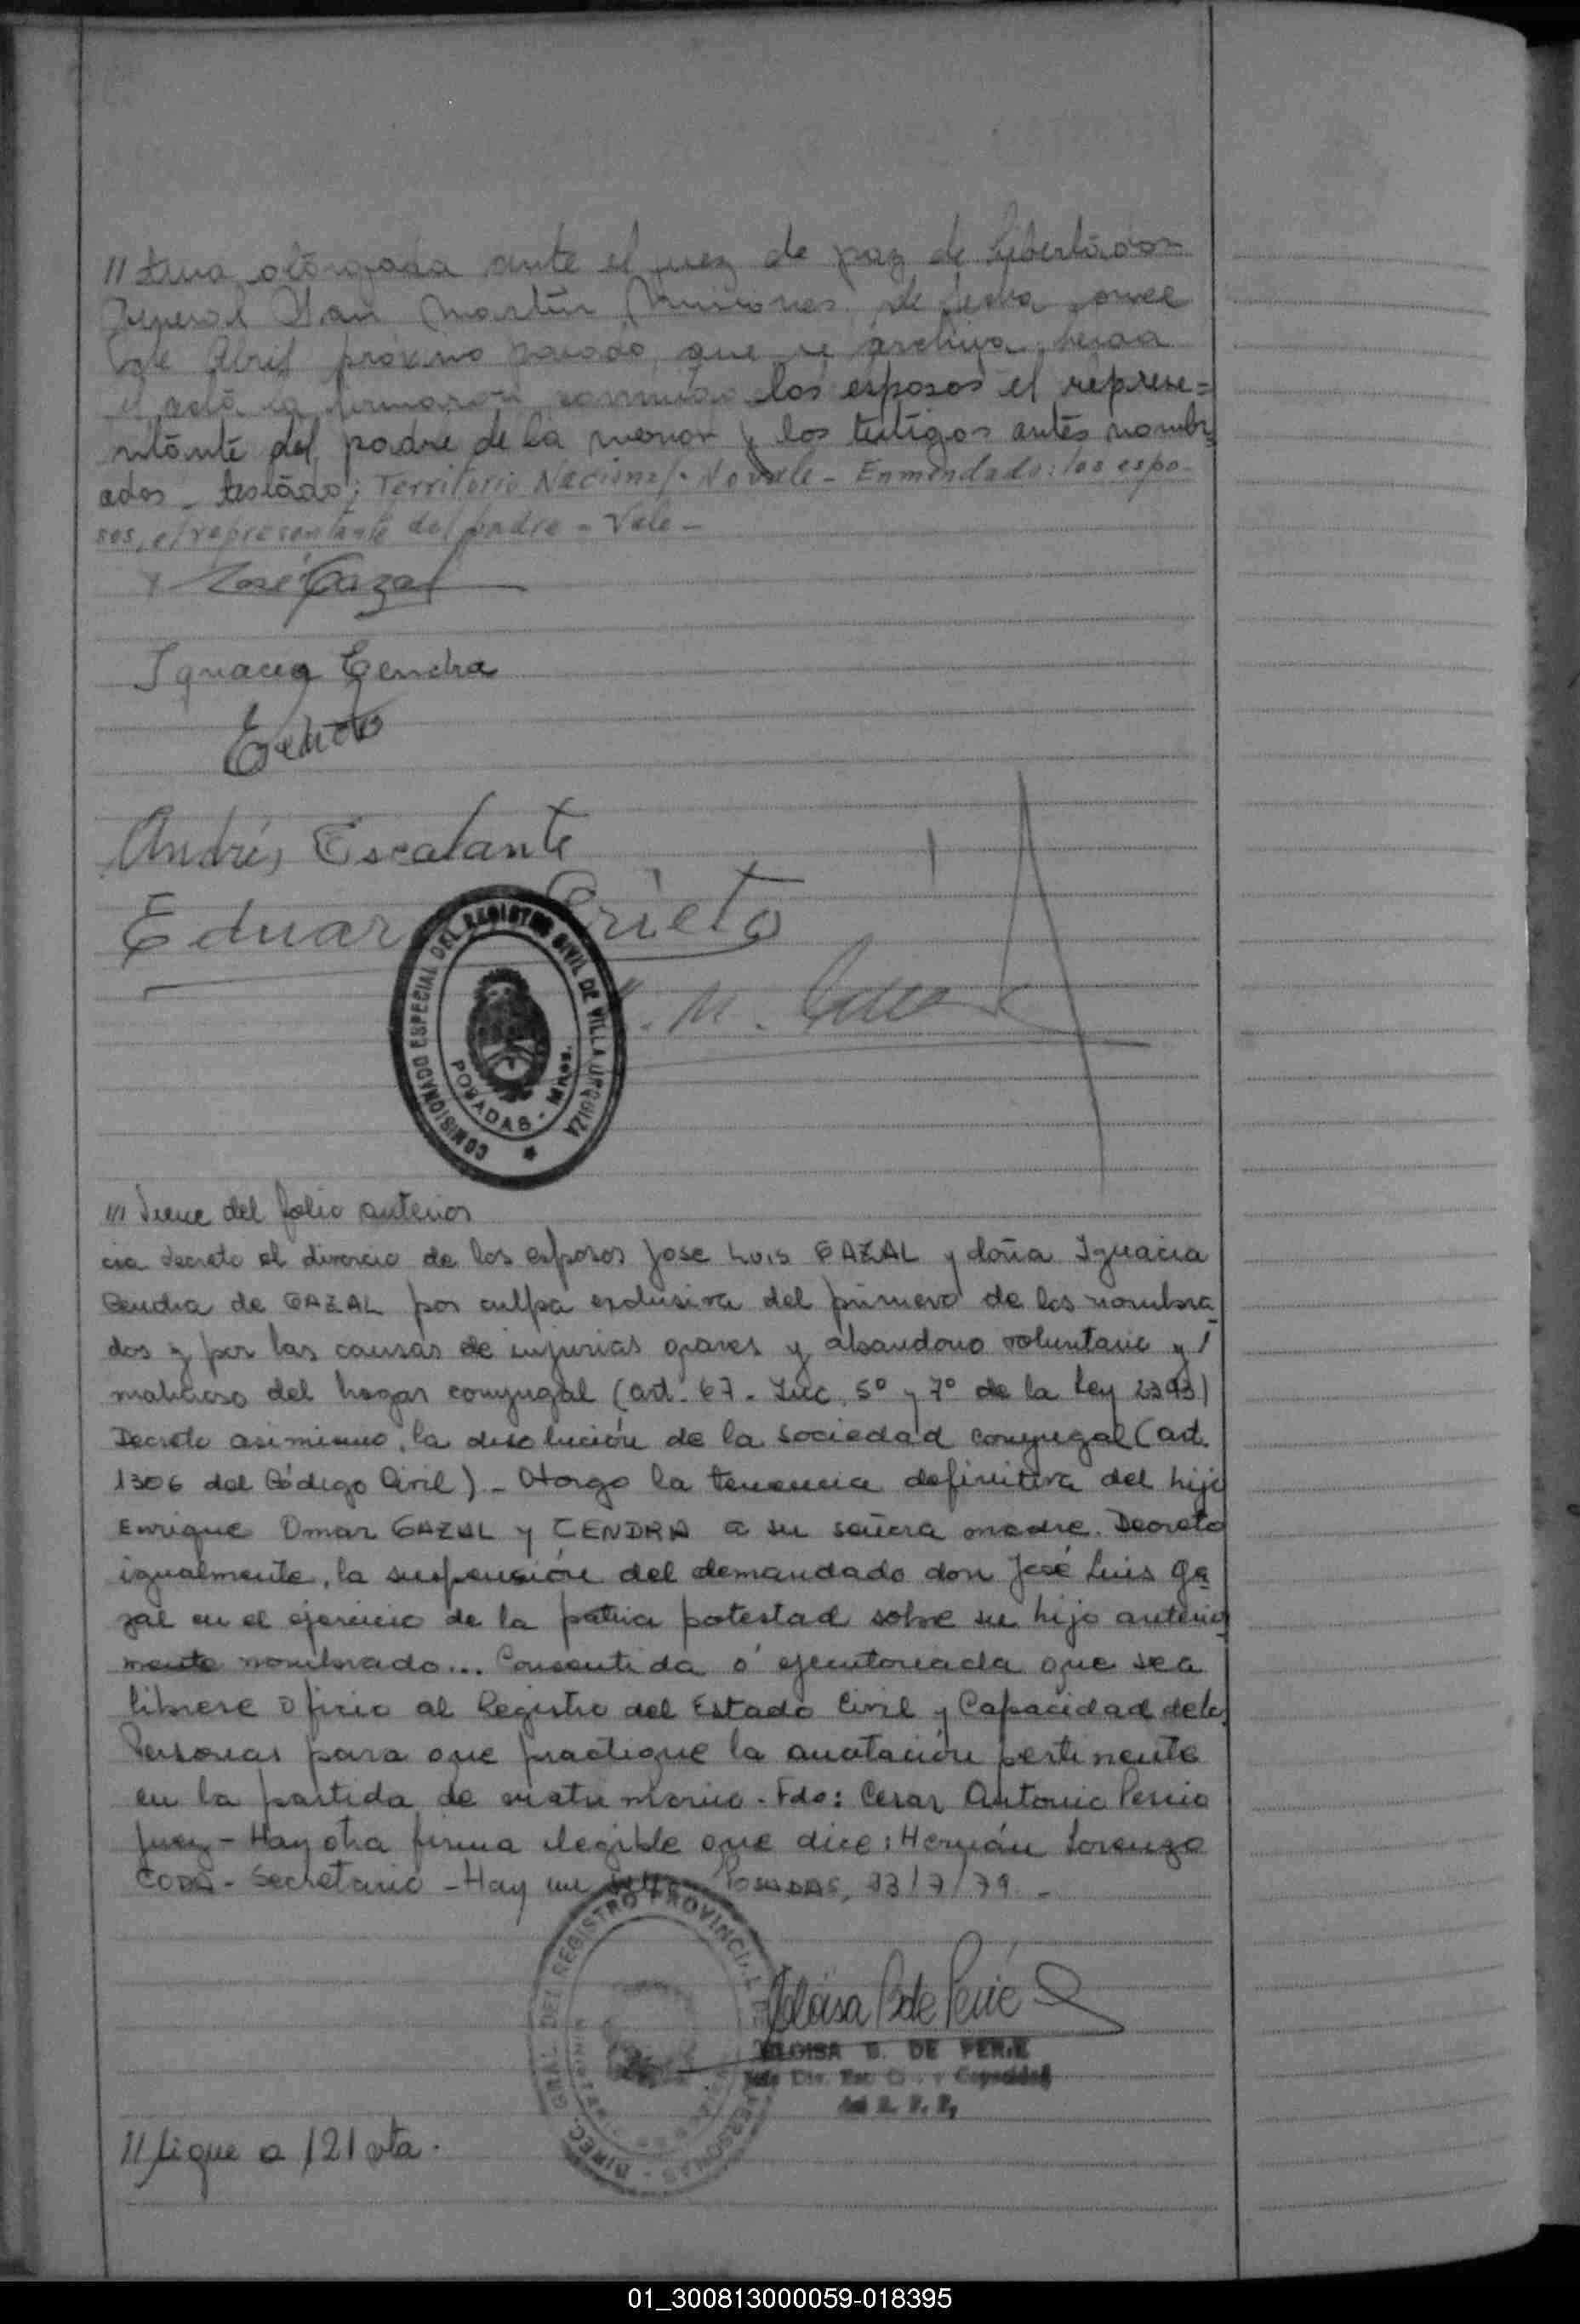 // tura otorgada ante el juez de paz de Libertador
General San Martín Misiones de fecha once
de Abril próximo pasado que se archiva, leida
el acta la firmaron conmigo los esposos el repres=
ntante del padre de la menor y los testigos antes nombr
ados - testado: Territorio Nacional - No vale - Enmendado: los espo-
sos, el representante del padre - Vale -
José Gazal
Ignacia Cendra
Andrés Escalante
Eduar Prieto
COMISIONADO ESPECIAL DEL REGISTRO CIVIL DE VILLA URQUIZA
POSADAS - Mnes.
/// Viene del folio anterior
cia decreto el divorcio de los esposos Jose Luis GAZAL y doña Ignacia
Cendra de GAZAL por culpa exclusiva del primero de los nombra
dos y por las causas de injurias graves y abandono voluntario y /
malicioso del hogar conyugal (art. 67. Inc. 5º y 7º de la Ley 2393)
Decreto asimismo, la disolución de la sociedad conyugal (art.
1306 del Código Civil) - Otorgo la tenencia definitiva del hijo
Enrique Omar GAZAL y CENDRA a su señora madre. Decreto
igualmente, la suspensión del demandado don José Luis Ga
zal en el ejercicio de la patria potestad sobre su hijo anterior
mente nombrado... Consentida ó ejecutoriada que sea
librese oficio al Registro del Estado Civil y Capacidad de la
Personas para que practique la anotación pertinente
en la partida de matrimonio - Fdo: Cesar Antonio
Juez - Hay otra firma ilegible que dice: Hernán Lorenzo
CODA - Secretario - Hay un sello POSADAS, 23/7/79 -
Eloisa B de Perié
ELOISA B. DE PERIE
DIREC. GRAL DEL REGISTRO PROVINCIAL DE PERSONAS
// sigue a 121 vta.
01_300813000059-018395